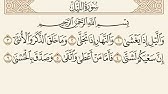 سورة الليل
بسم الله الرحمن الرحيم
والليل إذا يغشى ١ والنهار إذا تجلى ٢ وما خلق الذكر والأنثى ٣
إن سعيكم لشتى ٤ فأما من أعطى واتقى ٥ وصدق بالحسنى ٦